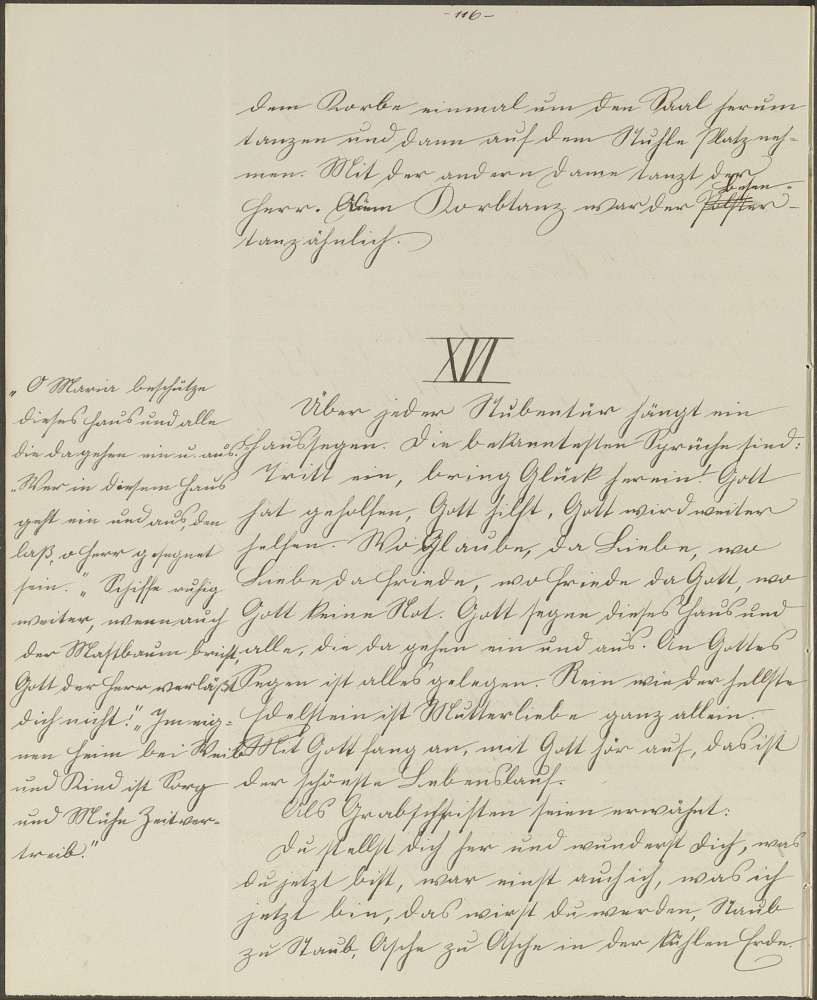 -116-
dem Korbe einmal um den Saal herum
tanzen und dann auf dem Stuhle Platz neh-
men. Mit der andern Dame tanzt der
Herr. Dem Korbtanz war der Polster-
Besen-
tanz ähnlich.
XVI
Über jeder Stubentür hängt ein
Haussegen. Die bekanntesten Sprüche sind:
Tritt ein, bring Glück herein! Gott
hat geholfen, Gott hilft, Gott wird weiter
helfen. Wo Glaube, da Liebe, wo
Liebe da Friede, wo Friede da Gott, wo
Gott keine Not. Gott segne dieses Haus und
alle, die da gehen ein und aus. An Gottes
Segen ist alles gelegen. Rein wie der hellste
Edelstein ist Mutterliebe ganz allein.
Mit Gott fang an, mit Gott hör auf, das ist
der schönste Lebenslauf.
Als Grabschriften seien erwähnt:
Du stellst dich her und wunderst dich, was
du jetzt bist, war einst auch ich, was ich
jetzt bin, das wirst du werden, Staub
zu Staub, Asche zu Asche in der kühlen Erde.
„O Maria beschütze
dieses Haus und alle
die da gehen ein u. aus."
„Wer in diesem Haus
geht ein und aus, den
laß, o Herr gesegnet
sein." „Schiffe ruhig
weiter, wenn auch
der Mastbaum bricht,
Gott der Herr verläßt
dich nicht!" „Im eig-
nen Heim bei Weib
und Kind ist Sorg
und Mühe Zeitver-
treib."